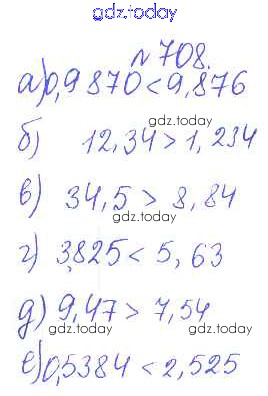 gdz.today
№ 708.
а) 0,9870 < 9,876
б) 12,34 > 1,234
gdz.today
в) 34,5 > 8,84
gdz.today
г) 3,825 < 5,63
gdz.today
д) 9,47 > 7,54
gdz.today
gdz.today
е) 0,5384 < 2,525